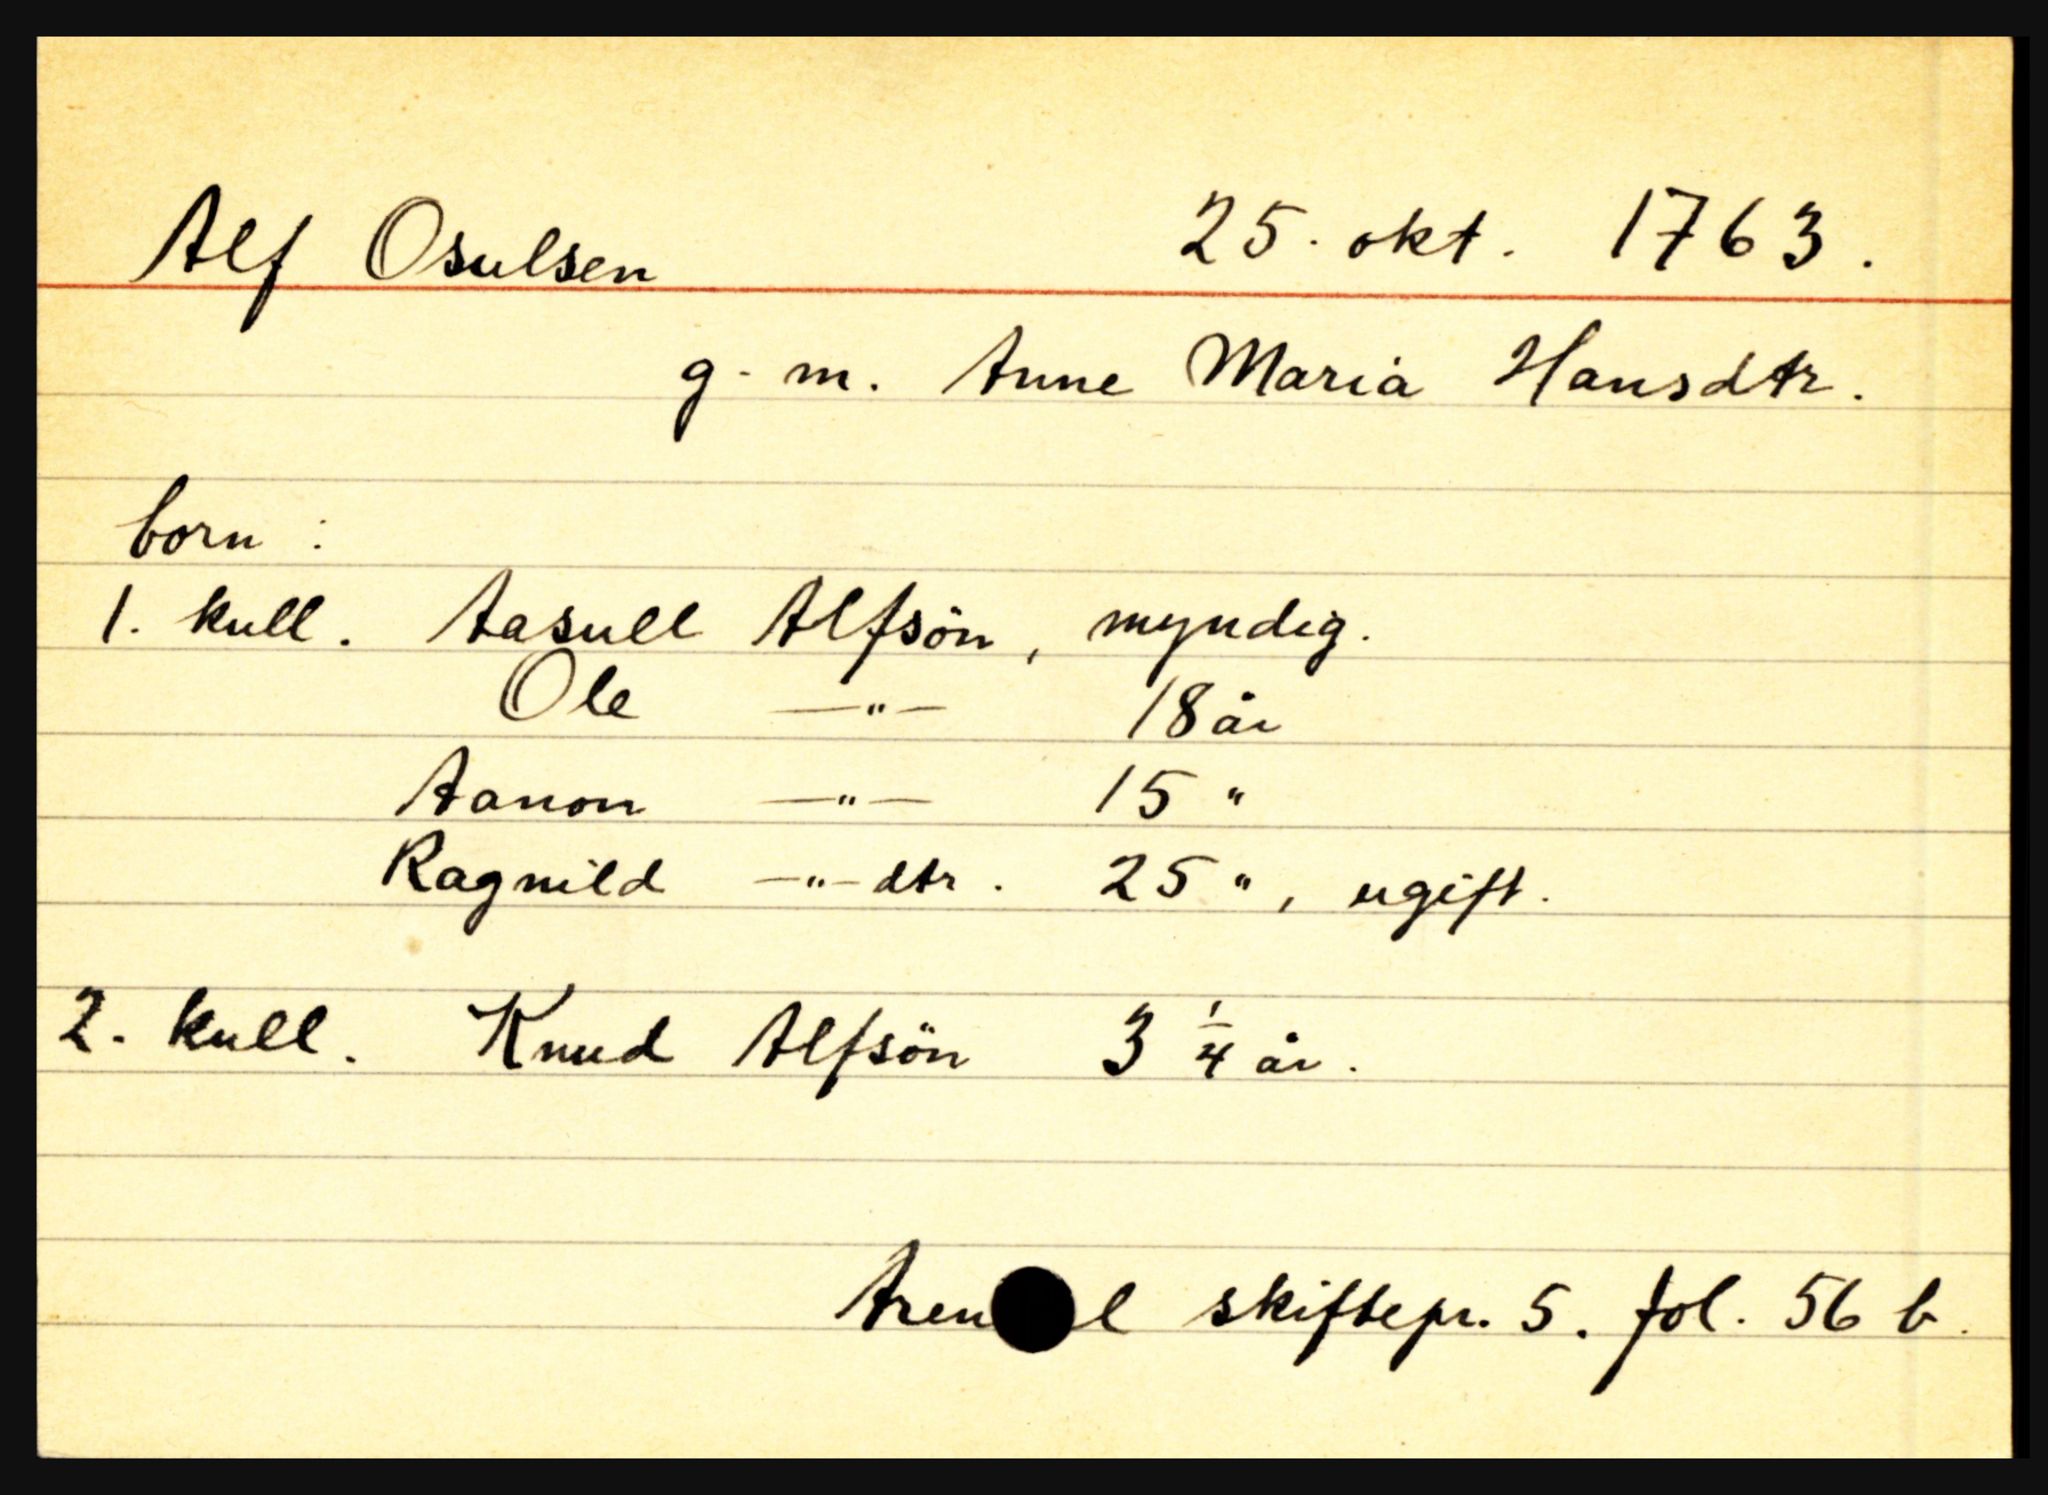 Alf Osulsen 25. okt. 1763.
g. m. Anne Maria Hansdtr.
born :
1. kull. Aasull Alfsön, myndig.
Ole —"— 18 år
Aanon —"— 15 "
Ragnild —"— dtr. 25 ", ugift.
2. kull. Knud Alfsön 3 1/4 år.
Aren l skiftepr. 5. fol. 56 b.